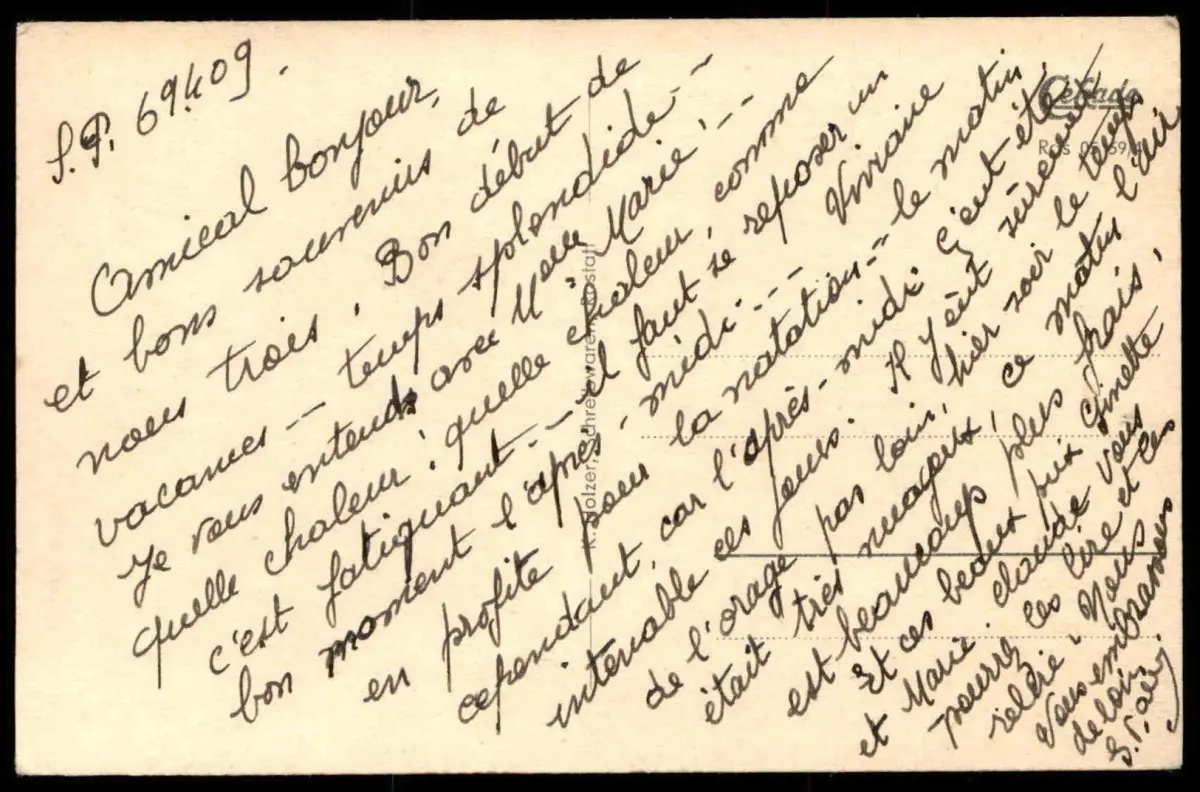 S.P. 69.409.
Amical bonjour,
et bons souvenirs de
nous trois. Bon début de
vacances - temps splendide -
Je vous entends avec Melle Marie! -
quelle chaleur! quelle chaleur, comme
c'est fatiguant. - il faut se reposer un
bon moment l'après-midi --- Viviane
en profite pour la natation -- le matin
cependant, car l'après-midi c'eut été
intenable ces jours. Il y eut sûrement
de l'orage pas loin, hier soir le temps
était très nuageux, ce matin l'air
est beaucoup plus frais.
Et ces beaux prix Ginette
et Marie Claude vous
pourrez les lire et les
relire. Nous
vous embrassons
de loin
Cekade
K. Holzer, Schreibwaren, Rastatt